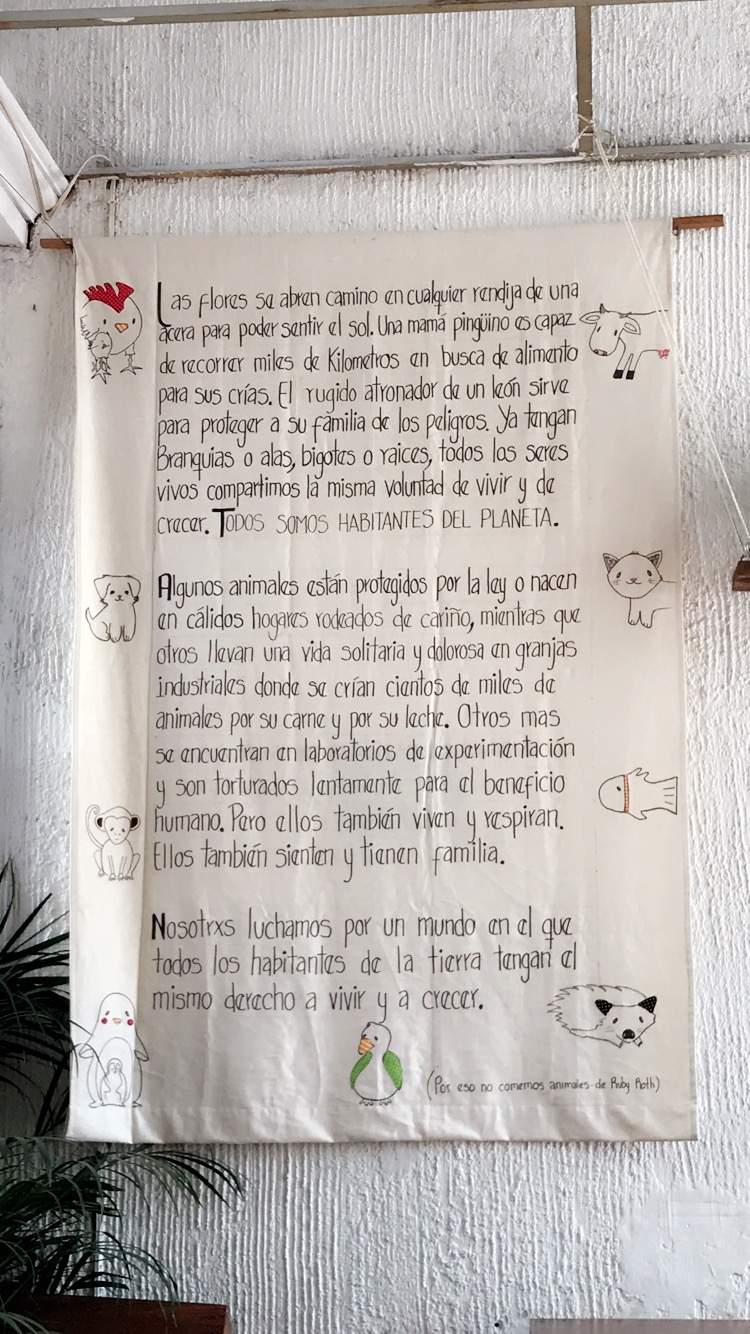 Las flores se abren camino en cualquier rendija de una
acera para poder sentir el sol. Una mamá pingüino es capaz
de recorrer miles de Kilometros en busca de alimento
para sus crías. El rugido atronador de un león sirve
para proteger a su familia de los peligros. Ya tengan
Branquias o alas, bigotes o raices, todos los seres
vivos compartimos la misma voluntad de vivir y de
crecer. TODOS SOMOS HABITANTES DEL PLANETA.
Algunos animales están protegidos por la ley o nacen
en cálidos hogares rodeados de cariño, mientras que
otros llevan una vida solitaria y dolorosa en granjas
industriales donde se crían cientos de miles de
animales por su carne y por su leche. Otros mas
se encuentran en laboratorios de experimentación
y son torturados lentamente para el beneficio
humano. Pero ellos también viven y respiran.
Ellos también sienten y tienen familia.
Nosotrxs luchamos por un mundo en el que
todos los habitantes de la tierra tengan el
mismo derecho a vivir y a crecer.
(Por eso no comemos animales-de Ruby Roth)